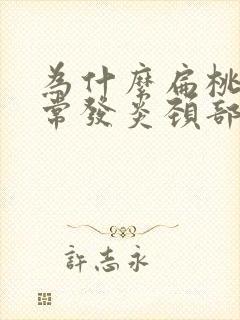 為什麼扁桃
常發炎頚部
許志永